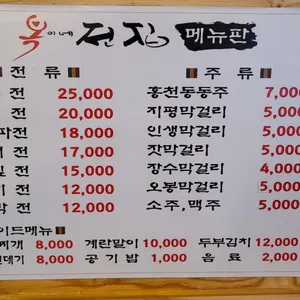 복이네 전집 메뉴판
전 류
주 류
전 25,000
전 20,000
파전 18,000
전 17,000
전 15,000
전 12,000
전 12,000
홍천동동주 7,000
지평막걸리 5,000
인생막걸리 5,000
잣막걸리 5,000
장수막걸리 4,000
오봉막걸리 5,000
소주,맥주 5,000
이드메뉴
찌개 8,000 계란말이 10,000 두부김치 12,000
데기 8,000 공기밥 1,000 음료 2,000